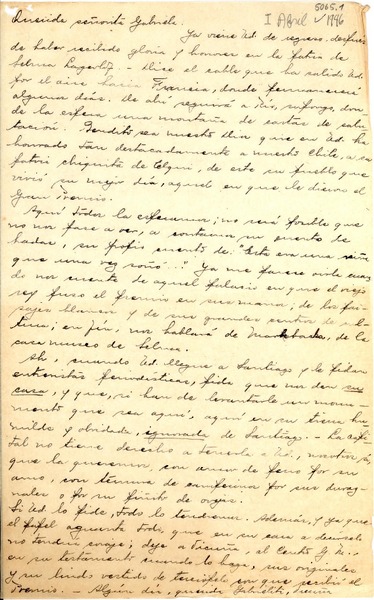 5065.1
I Abril 1946
Querida señorita Gabriela:
Ya viene Ud. de regreso, después
de haber recibido gloria y honores en la patria de
Selma Lagerlöf. - Dice el cable que ha salido Ud.
por el aire hacia Francia, donde permanecerá
algunos días. De ahí seguirá a Río, supongo, don-
de la espera una montaña de cartas de salu-
tación. Bendito sea nuestro Dios que en Ud. ha
honrado tan destacadamente a nuestro Chile, a su
patria chiquita de Elqui, de este su pueblo que
vivió su mejor día, aquel en que le dieron el
Gran Premio.
Aquí todos la esperamos; ¿no será posible que
no nos pase a ver, a contarnos su cuento de
hadas, su propio cuento de: "Esta era una niña
que una vez soñó..." Ya me parece oirla cuan-
do nos cuente de aquel palacio en que el viejo
rey puso el premio en sus manos; de los pai-
sajes blancos y de sus grandes sertos de
en fin, nos hablará de Marbacka, de la
casa museo de Selma.
Ah, cuando Ud. llegue a Santiago y le pidan
entrevistas periodísticas, pide que nos den su
casa, y que, si han de levantarle un monu-
mento que sea aquí, aquí en su tierra hu-
milde y olvidada, ignorada de Santiago. - La capi-
tal no tiene derecho a tenerla a Ud., nosotros sí
que la queremos, con amor de perro por su
amo, con ternura de campesino por sus duraz-
nales o por su piñito de ovejas.
Si Ud. lo pide, todo lo tendremos. Además, y ya que
el papel aguanta todo, que en su cara a decírselo
no tendría coraje; deje a Vicuña, al Centro G. M.,
en su testamento cuando lo haga, sus originales
y su lindo vestido de terciopelo con que recibió el
Premio. - Algún día, querida Gabrielita, Vicuña